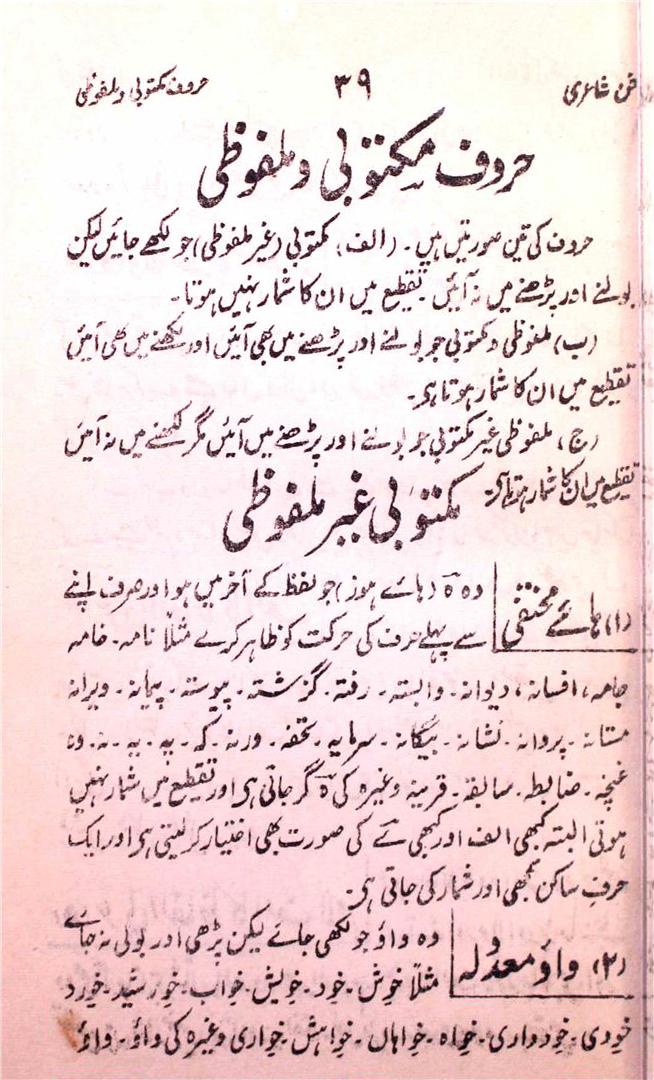 فن شاعری ۳۹ حروف مکتوبی و ملفوظی
حروف مکتوبی و ملفوظی
حروف کی تین صورتیں ہیں۔ (الف) مکتوبی (غیر ملفوظی) جو لکھے جائیں لیکن
بولنے اور پڑھنے میں نہ آئیں تقطیع میں ان کا شمار نہیں ہوتا۔
(ب) ملفوظی و مکتوبی جو بولنے اور پڑھنے میں بھی آئیں اور لکھنے میں بھی آئیں
تقطیع میں ان کا شمار ہوتا ہی۔
(ج) ملفوظی غیر مکتوبی جو بولنے اور پڑھنے میں آئیں مگر لکھنے میں نہ آئیں
تقطیع میں ان کا شمار ہوتا ہی۔
مکتوبی غیر ملفوظی
(۱) ہائے مختفی
وہ ہ (ہائے ہوز) جو لفظ کے آخر میں ہو اور صرف اپنے
سے پہلے حرف کی حرکت کو ظاہر کرے مثلاً نامہ۔ خامہ
جامہ، افسانہ، دیوانہ۔ وابستہ۔ رفتہ۔ گزشتہ۔ پیوستہ۔ پیمانہ۔ ویرانہ
مستانہ۔ پروانہ۔ نشانہ۔ بیگانہ۔ سرمایہ۔ تحفہ۔ ورنہ۔ کہ۔ یہ۔ بہ۔ نہ۔ وہ
غنچہ۔ ضابطہ۔ سابقہ۔ قرینہ وغیرہ کی ہ گر جاتی ہی اور تقطیع میں شمار نہیں
ہوتی البتہ کبھی الف اور کبھی ے کی صورت بھی اختیار کر لیتی ہی اور ایک
حرف ساکن سمجھی اور شمار کی جاتی ہی۔
(۲) واؤ معدولہ
وہ واؤ جو لکھی جائے لیکن پڑھی اور بولی نہ جائے
مثلاً خوش۔ خود۔ خویش۔ خواب۔ خورشید۔ خورد
خودی۔ خودداری۔ خواہ۔ خواہاں۔ خواہش۔ خواری وغیرہ کی واؤ۔ واؤ